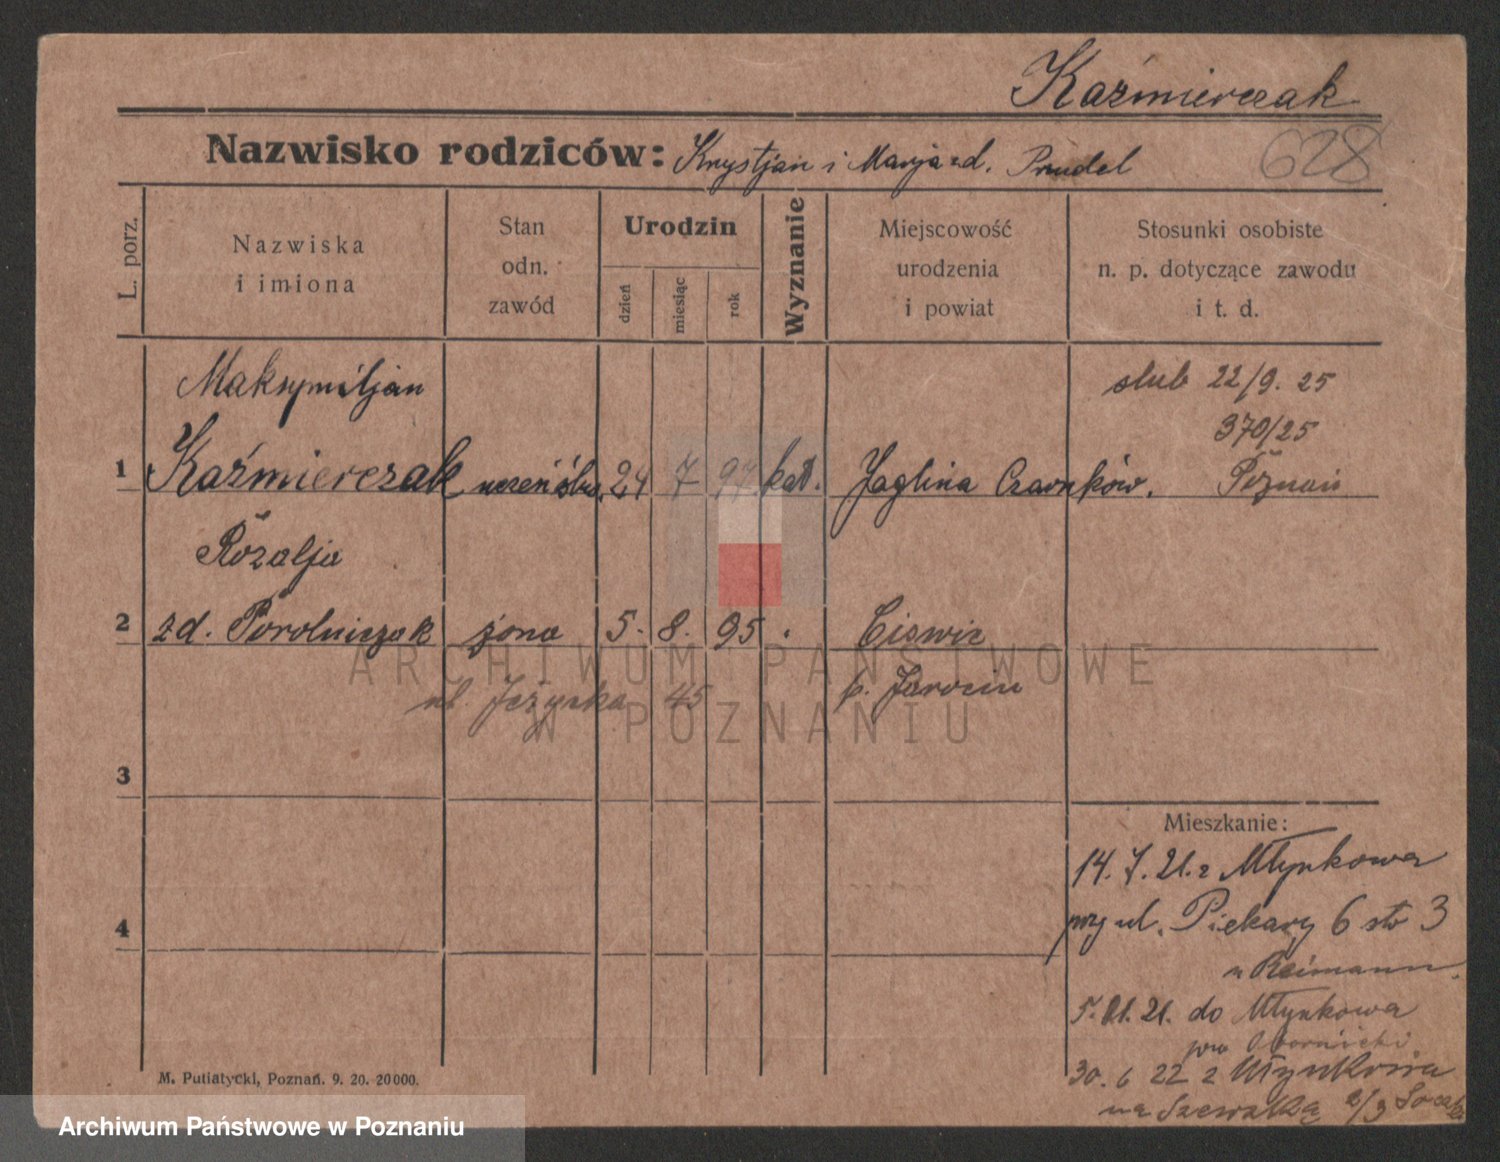 Kaźmierczak
Nazwisko rodziców: Krystjan i Marja zd. Prudel
628
L. porz.
Nazwiska
i imiona
Stan
odn.
zawód
Urodzin
dzień
miesiąc
rok
Wyznanie
Miejscowość
urodzenia
i powiat
Stosunki osobiste
n. p. dotyczące zawodu
i t. d.
Maksymiljan
ślub 22/9. 25
370/25
1 Kaźmierczak 24 7 kat. Jaglina Czarnków. Poznań
Rozalja
2 zd. żona 5. 8. 95 Ciswic
ul. Jeżycka 45 p. Jarocin
ARCHIWUM PAŃSTWOWE
W POZNANIU
3
4
Mieszkanie:
14. 7. 21. z Młynkowa
przy ul. Piekary 6 3
u Reimann.
21. do Młynkowa
pow Obornicki
30. 6 22 z Młynkowa
na
M. Putiatycki, Poznań. 9. 20. 20000.
Archiwum Państwowe w Poznaniu